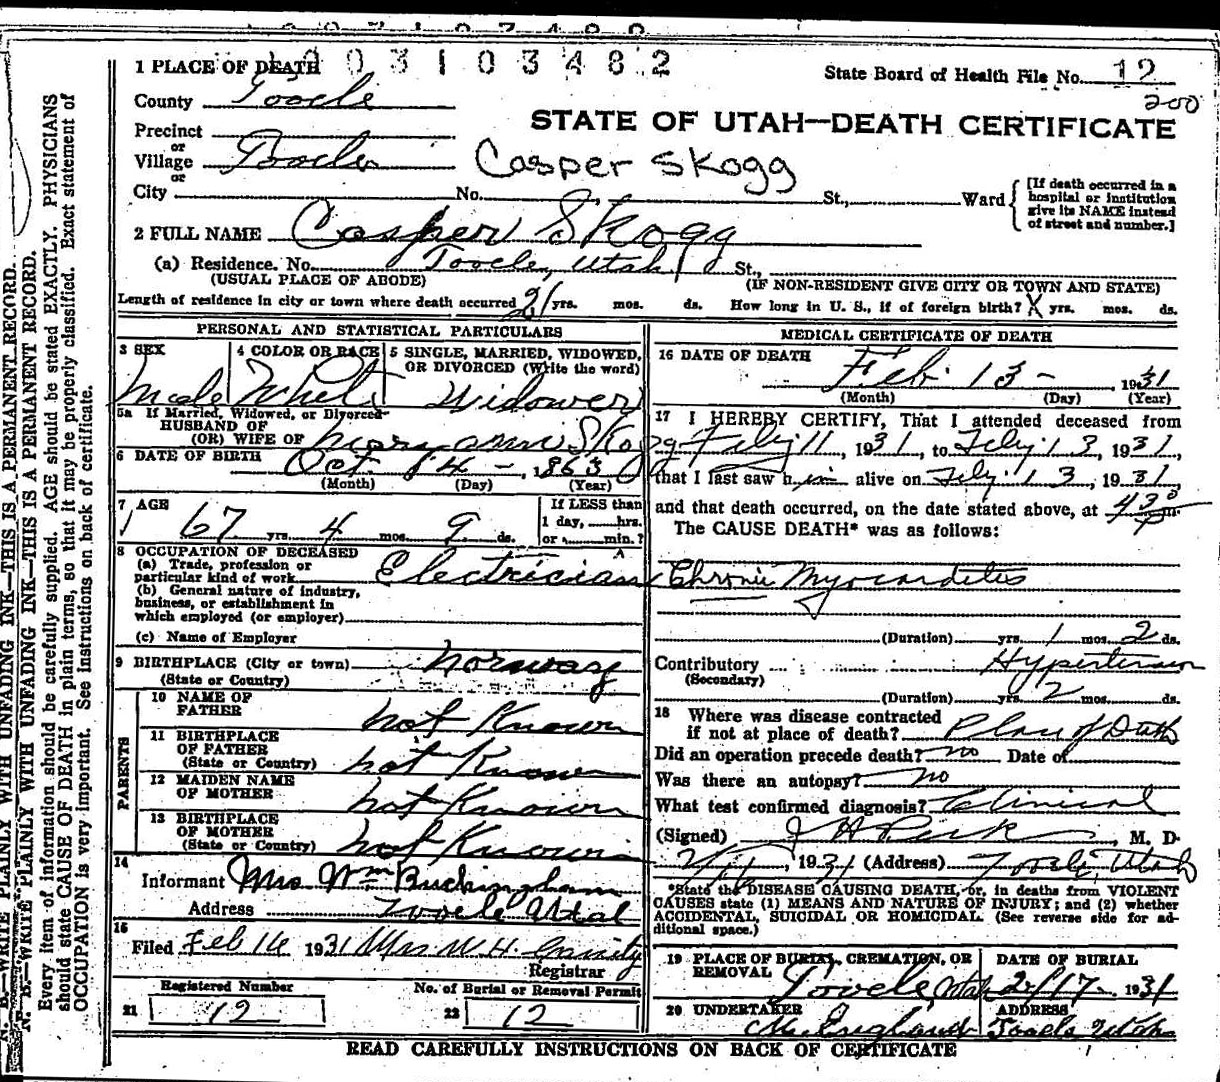 1003103482
1 PLACE OF DEATH
State Board of Health File No. 12
200
County Tooele
STATE OF UTAH—DEATH CERTIFICATE
Precinct
or
Village Tooele
Casper Skogg
or
City No. St., Ward
[If death occurred in a
hospital or institution
give its NAME instead
of street and number.]
2 FULL NAME Casper Skogg
(a) Residence. No. Tooele, Utah St.,
(USUAL PLACE OF ABODE) (IF NON-RESIDENT GIVE CITY OR TOWN AND STATE)
Length of residence in city or town where death occurred 21 yrs. mos. ds. How long in U. S., if of foreign birth? X yrs. mos. ds.
PERSONAL AND STATISTICAL PARTICULARS
3 SEX
Male
4 COLOR OR RACE
White
5 SINGLE, MARRIED, WIDOWED,
OR DIVORCED (Write the word)
Widower
5a If Married, Widowed, or Divorced
HUSBAND OF
(OR) WIFE OF Mary Ann Skogg
6 DATE OF BIRTH Oct 4 - 1863
(Month) (Day) (Year)
7 AGE
67 yrs. 4 mos. 9 ds.
If LESS than
1 day, hrs.
or min.?
8 OCCUPATION OF DECEASED
(a) Trade, profession or
particular kind of work Electrician
(b) General nature of industry,
business, or establishment in
which employed (or employer)
(c) Name of Employer
9 BIRTHPLACE (City or town) Norway
(State or Country)
PARENTS
10 NAME OF
FATHER not Known
11 BIRTHPLACE
OF FATHER
(State or Country) not Known
12 MAIDEN NAME
OF MOTHER not Known
13 BIRTHPLACE
OF MOTHER
(State or Country) not Known
14
Informant Mrs Wm Buckingham
Address Tooele Utah
15
Filed Feb 14 1931 Mrs W. H.
Registrar
Registered Number
21 12
No. of Burial or Removal Permit
22 12
MEDICAL CERTIFICATE OF DEATH
16 DATE OF DEATH
Feb. 13 - , 1931
(Month) (Day) (Year)
17 I HEREBY CERTIFY, That I attended deceased from
Feby 11, 1931, to Feby 13, 1931,
that I last saw him alive on Feby 13, 1931,
and that death occurred, on the date stated above, at 4 30 P m.
The CAUSE DEATH* was as follows:
Chronic Myocarditis
(Duration) yrs. 1 mos. 2 ds.
Contributory Hypertension
(Secondary)
(Duration) yrs. 2 mos. ds.
18 Where was disease contracted
if not at place of death? Place of Death
Did an operation precede death? no Date of
Was there an autopsy? no
What test confirmed diagnosis? Clinical
(Signed) J H Peck, M. D.
, 1931 (Address) Tooele, Utah
*State the DISEASE CAUSING DEATH, or, in deaths from VIOLENT
CAUSES state (1) MEANS AND NATURE OF INJURY; and (2) whether
ACCIDENTAL, SUICIDAL OR HOMICIDAL. (See reverse side for ad-
ditional space.)
19 PLACE OF BURIAL, CREMATION, OR
REMOVAL
Tooele, Utah
DATE OF BURIAL
2/17 1931
20 UNDERTAKER
England
ADDRESS
Tooele Utah
READ CAREFULLY INSTRUCTIONS ON BACK OF CERTIFICATE
N. B.—WRITE PLAINLY WITH UNFADING INK—THIS IS A PERMANENT RECORD.
N. B.—WRITE PLAINLY WITH UNFADING INK—THIS IS A PERMANENT RECORD.
Every item of information should be carefully supplied. AGE should be stated EXACTLY. PHYSICIANS
should state CAUSE OF DEATH in plain terms, so that it may be properly classified. Exact statement of
OCCUPATION is very important. See instructions on back of certificate.